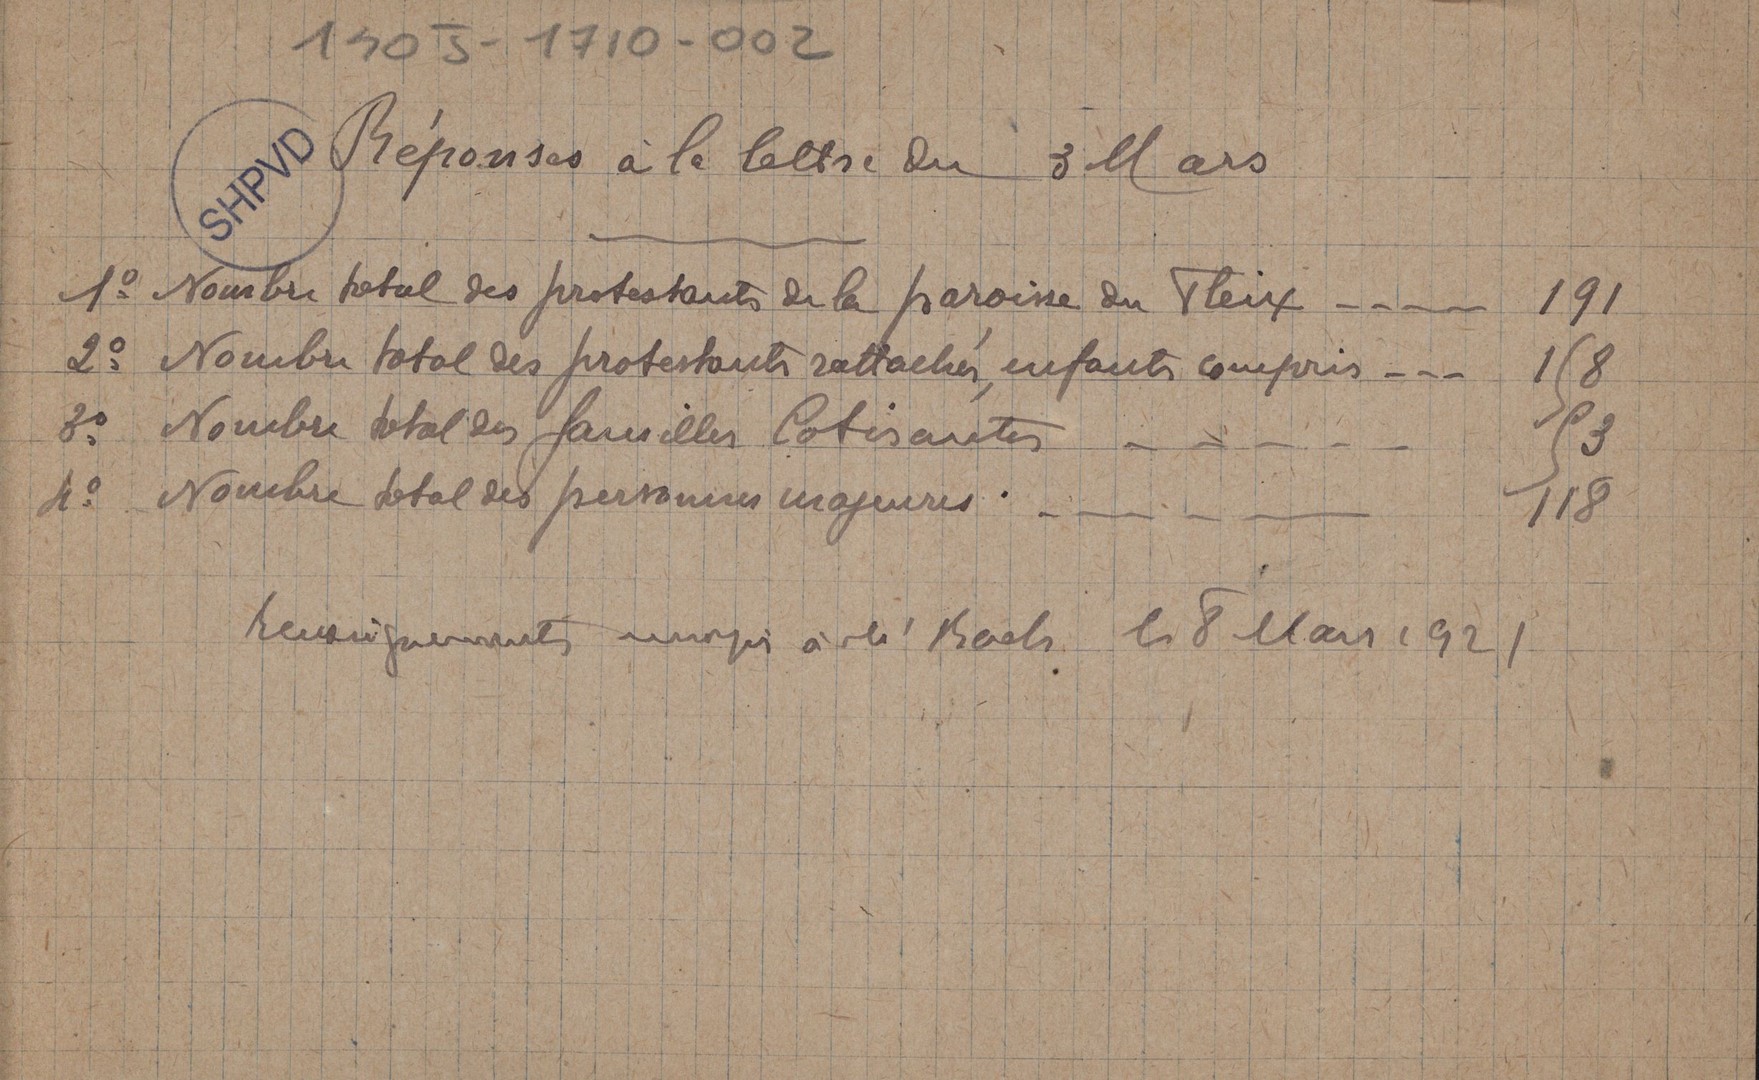 130J-1710-002
SHPVD
Réponses à la lettre du 3 Mars
1º Nombre total des protestants de la paroisse du Fleix ---- 191
2º Nombre total des protestants rattachés, enfants compris --- 158
3º Nombre total des familles Cotisantes - - - - - 53
4º Nombre total des personnes majeures. - - - - 118
Renseignements envoyés à Roch le 8 Mars 1921